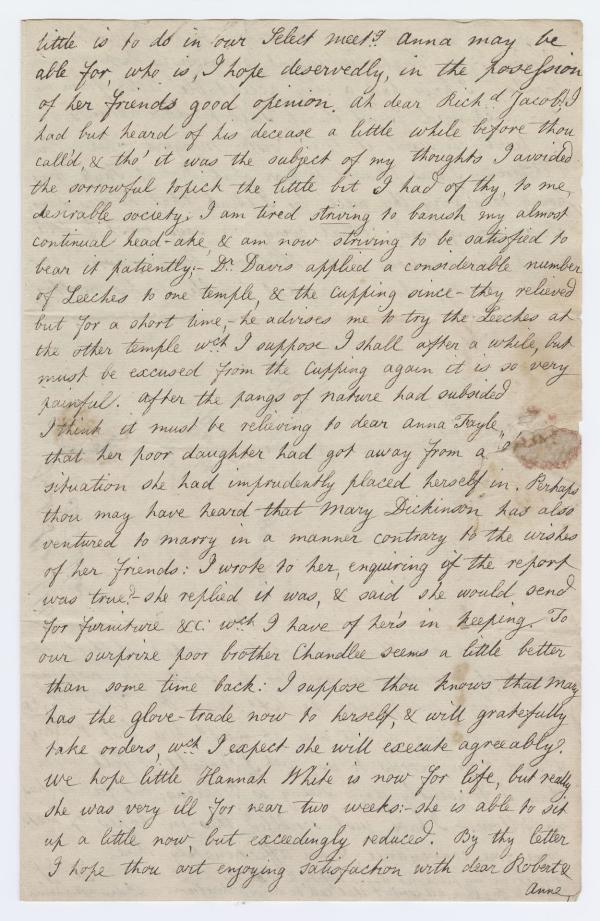 little is to do in our Select meetg. Anna may be
able for, who is, I hope deservedly, in the possession
of her friends good opinion. Ah dear Richd. Jacob, I
had but heard of his decease a little while before thou
call'd, & tho' it was the subject of my thoughts I avoided
the sorrowful topick the little bit I had of thy, to me,
desirable society. I am tired striving to banish my almost
continual head-ake, & am now striving to be satisfied to
bear it patiently;- Dr. Davis applied a considerable number
of Leeches to one temple, & the Cupping since - they relieved
but for a short time,- he advises me to try the Leeches at
the other temple wch. I suppose I shall after a while, but
must be excused from the Cupping again it is so very
painful. After the pangs of nature had subsided
I think it must be relieving to dear Anna Fayle
that her poor daughter had got away from a
situation she had imprudently placed herself in. Perhaps
thou may have heard that Mary Dickinson has also
ventured to marry in a manner contrary to the wishes
of her friends: I wrote to her, enquiring if the report
was true?- she replied it was, & said she would send
for furniture &c: wch. I have of her's in keeping. To
our surprize poor brother Chandlee seems a little better
than some time back: I suppose thou knows that Mary
has the glove-trade now to herself, & will gratefully
take orders, wch. I expect she will execute agreeably.
We hope little Hannah White is now for life, but really
she was very ill for near two weeks:- she is able to sit
up a little now, but exceedingly reduced. By thy letter
I hope thou art enjoying satisfaction with dear Robert &
Anne,